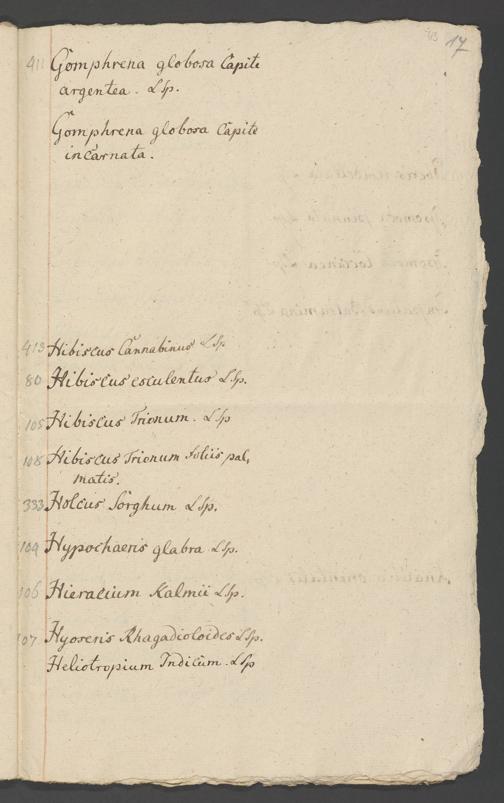 17
411 Gomphrena globosa Capite
argentea. L Sp.
Gomphrena globosa Capite
incarnata.
413 Hibiscus Cannabinus L Sp
80 Hibiscus esculentus L Sp.
105 Hibiscus Trionum. L Sp
108 Hibiscus Trionum foliis pal,
matis.
333 Holcus Sorghum L Sp.
109 Hypochaeris glabra L Sp.
106 Hieracium Kalmii L Sp.
107 Hyoseris Rhagadioloides L Sp.
Heliotropium Indicum. L Sp